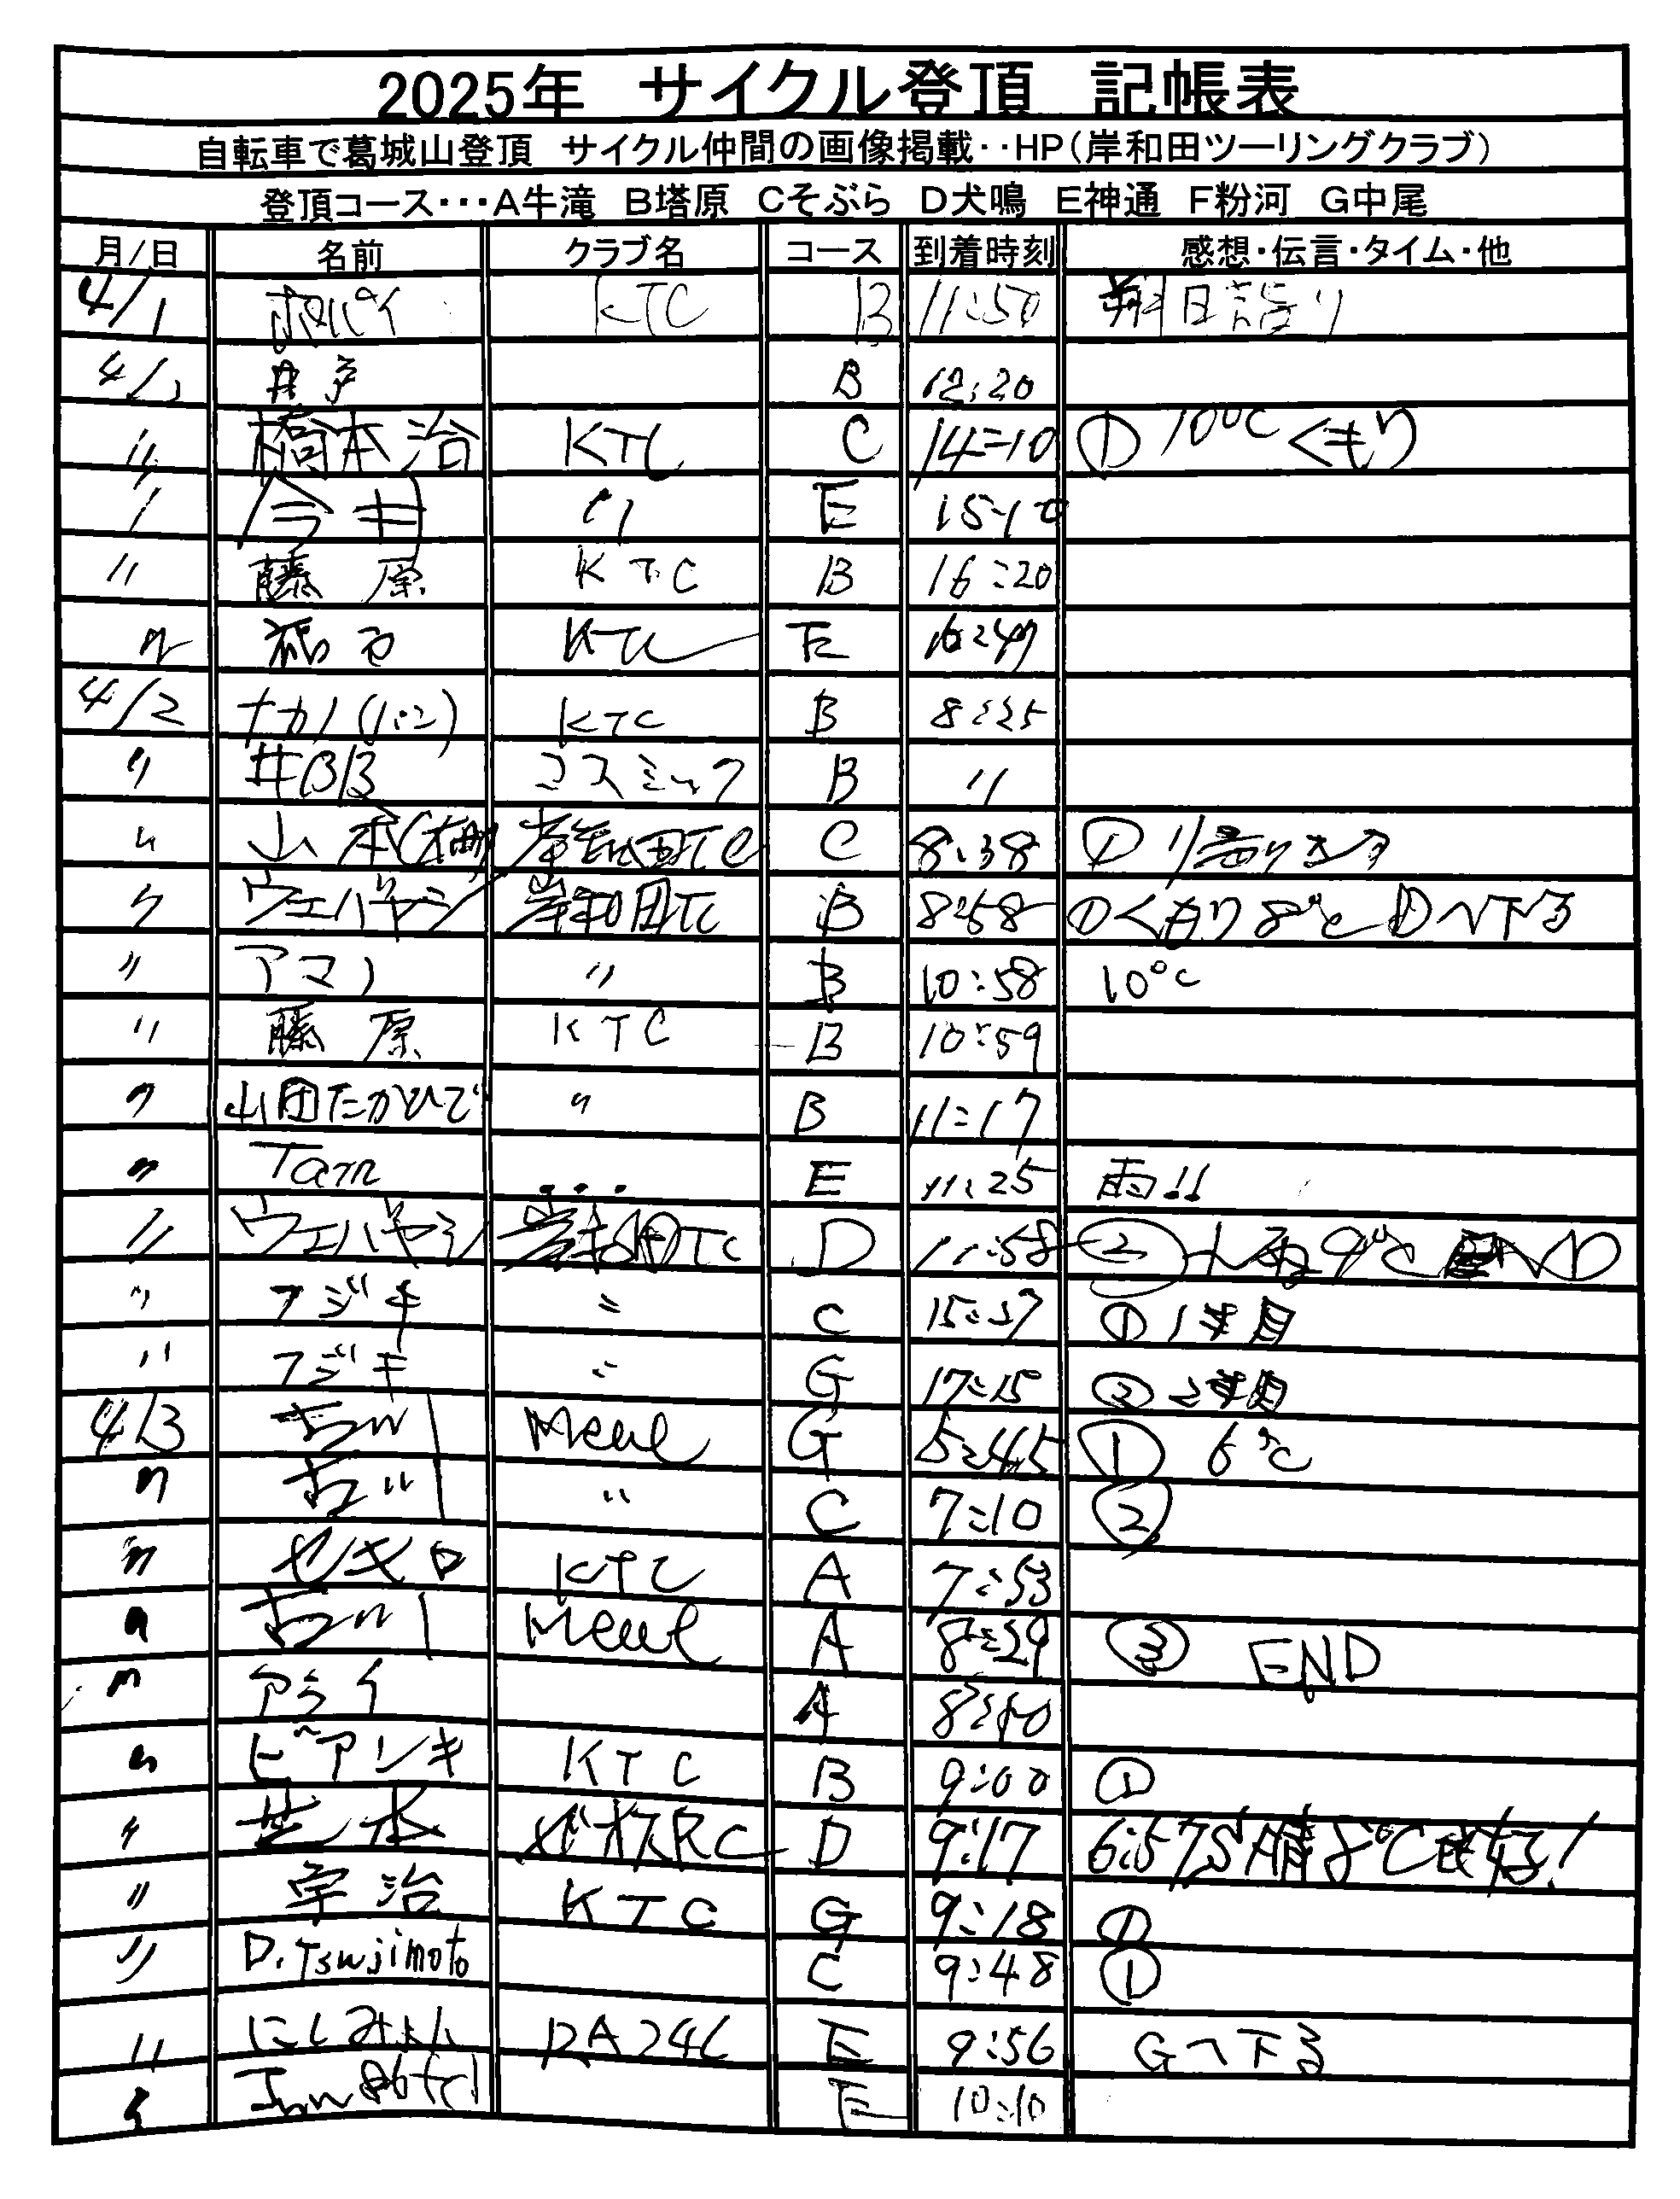 2025年 サイクル登頂 記帳表
自転車で葛城山登頂 サイクル仲間の画像掲載‥HP(岸和田ツーリングクラブ)
登頂コース・・・A牛滝 B塔原 Cそぶら D犬鳴 E神通 F粉河 G中尾
月/日 名前 クラブ名 コース 到着時刻 感想・伝言・タイム・他
4/1 KTC B 11:50 朔日詣り
4/1 井戸 B 12:20
〃 橋本治 KTC C 14:10 ① 10℃ くもり
〃 今井 〃 E 15:10
〃 藤原 KTC B 16:20
〃 KTC E 16:49
4/2 ナカノ(パン) KTC B 8:25
〃 井BB コスミック B 〃
〃 山本 岸和田TC C 8:38 ①
〃 ウエバヤシ 岸和田TC B 8:58 ①くもり 8℃ Dへ下る
〃 アマノ 〃 B 10:58 10℃
〃 藤原 KTC B 10:59
〃 山田たかひで 〃 B 11:17
〃 Tam E 11:25 雨!!
〃 ウエバヤシ 岸和田TC D 11:58 ② 9℃
〃 フジキ 〃 C 15:37 ① 1本目
〃 フジキ 〃 G 17:15 ② 2本目
4/3 古川 Meul G 5:45 ① 6℃
〃 古川 〃 C 7:10 ②
〃 セキロ KTC A 7:53
〃 古川 Meul A 8:29 ③ END
〃 アライ A 8:40
〃 ビアンキ KTC B 9:00 ①
〃 芝本 RC D 9:17 6:57S 晴 8℃
〃 宇治 KTC G 9:18 ①
〃 D.Tsujimoto C 9:48 ①
〃 にしみよし RA246 E 9:56 Gへ下る
〃 E 10:10